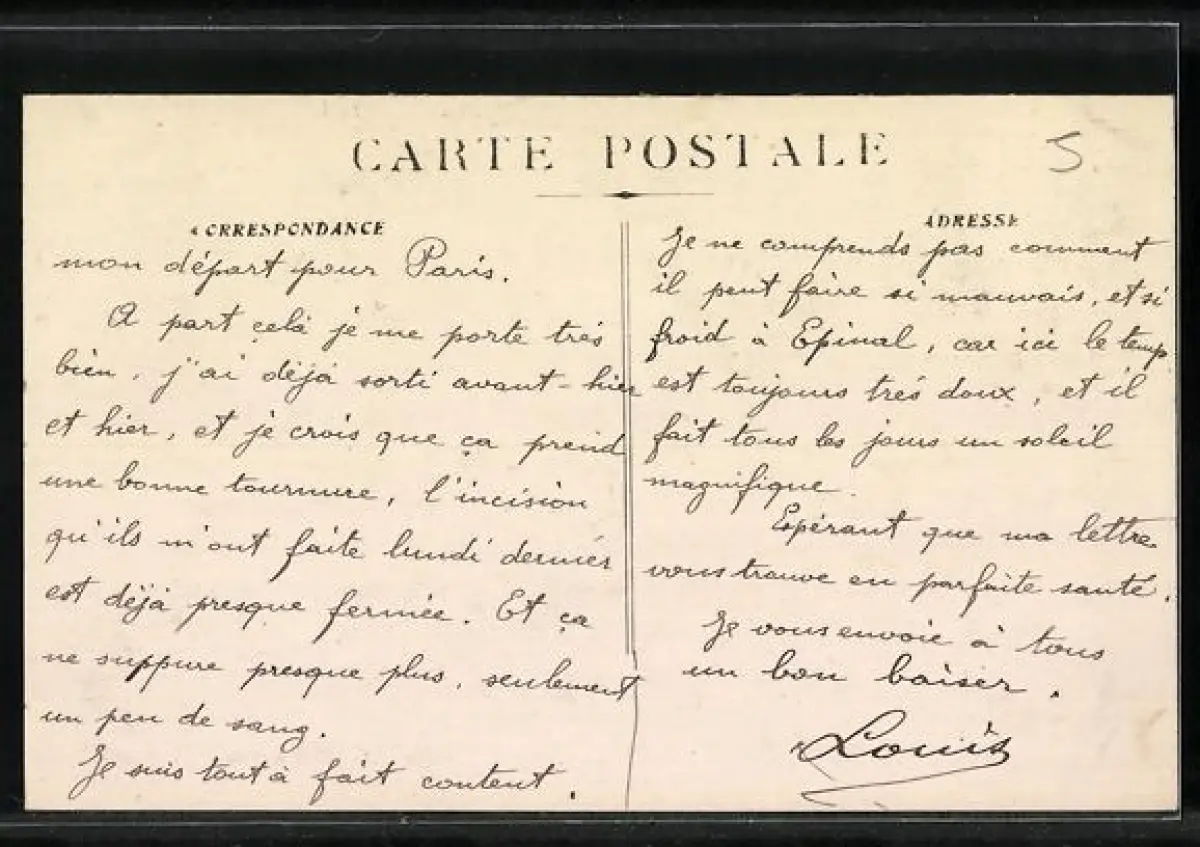 CARTE POSTALE
5
CORRESPONDANCE
mon départ pour Paris.
A part çelà je me porte trés
bien, j'ai déjà sorti avant-hier
et hier, et je crois que ça prend
une bonne tournure, l'incision
qu'ils m'ont faite lundi dernier
est déjà presque fermée. Et ça
ne suppure presque plus, seulement
un peu de sang.
Je suis tout à fait content.
ADRESSE
Je ne comprends pas comment
il peut faire si mauvais, et si
froid à Epinal, car ici le temp
est toujours trés doux, et il
fait tous les jours un soleil
magnifique.
Espérant que ma lettre
vous trouve en parfaite santé.
Je vous envoie à tous
un bon baiser.
Louis